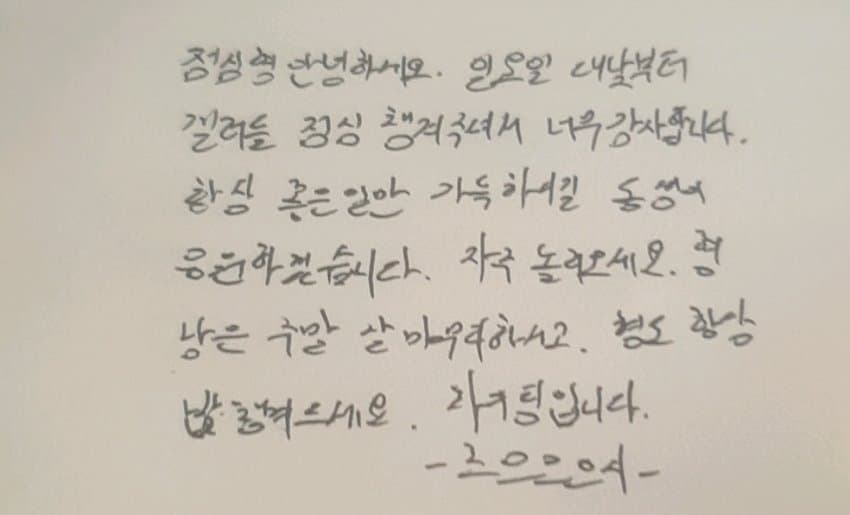 점심형 안녕하세요. 일요일 대낮부터
점심 챙겨주셔서 너무 감사합니다.
항상 좋은일만 가득하시길 동생이
응원하겠습니다. 자주 놀러오세요. 형
남은 주말 잘 마무리하시고. 형도 항상
밥 챙겨드세요. 파이팅입니다.